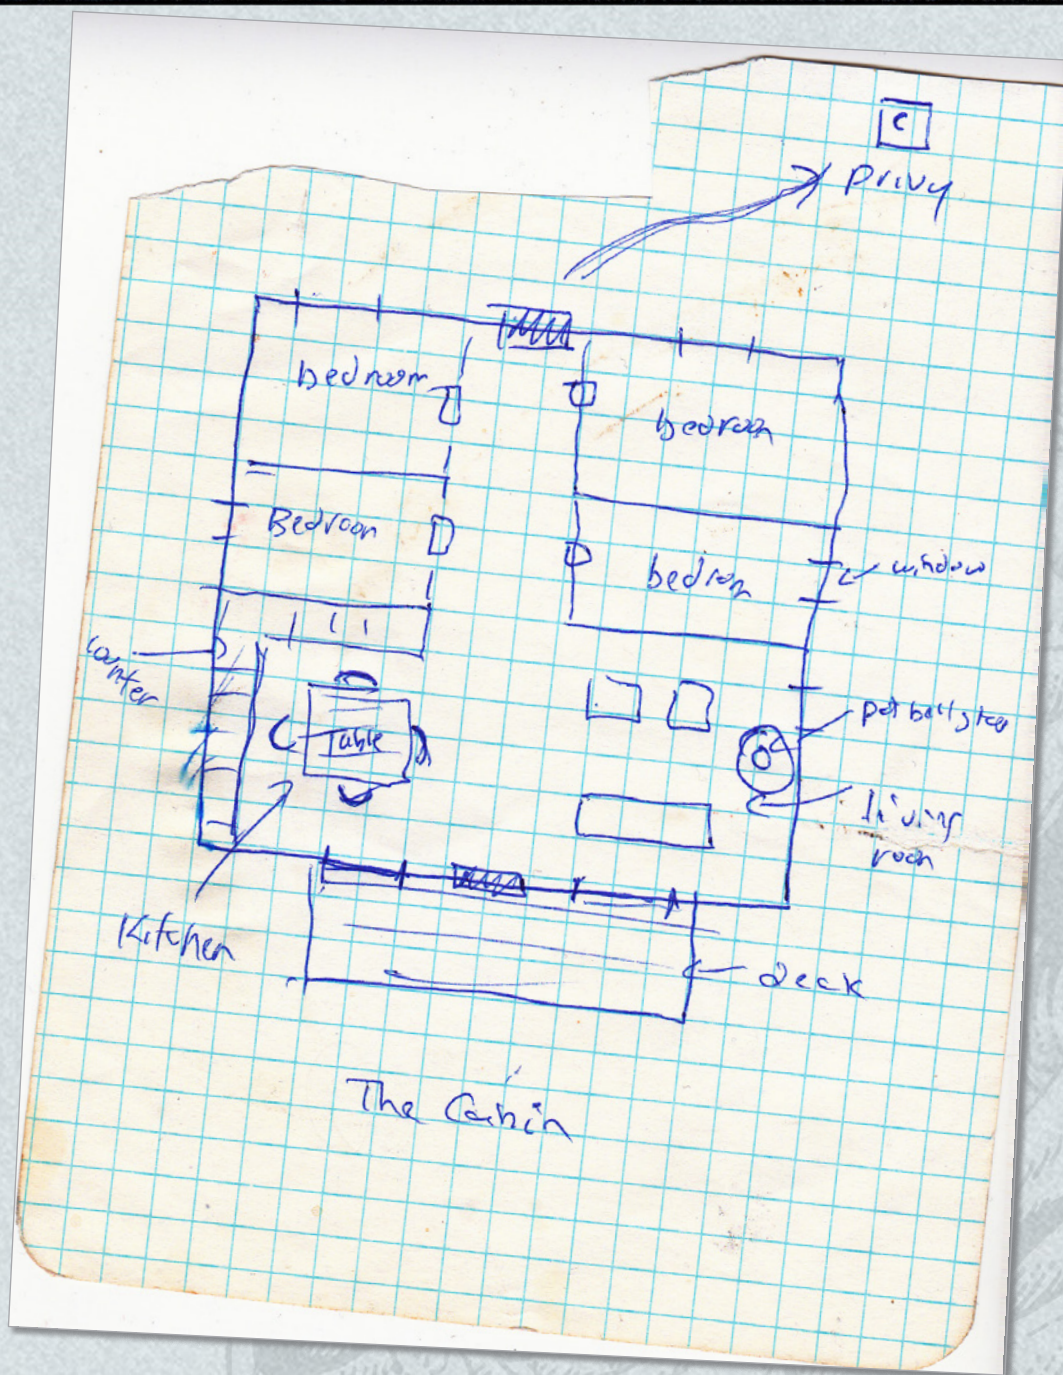 C
Privy
bedroom
bedroom
Bedroom
bedrom
window
counter
Table
living
room
Kitchen
deck
The Cabin